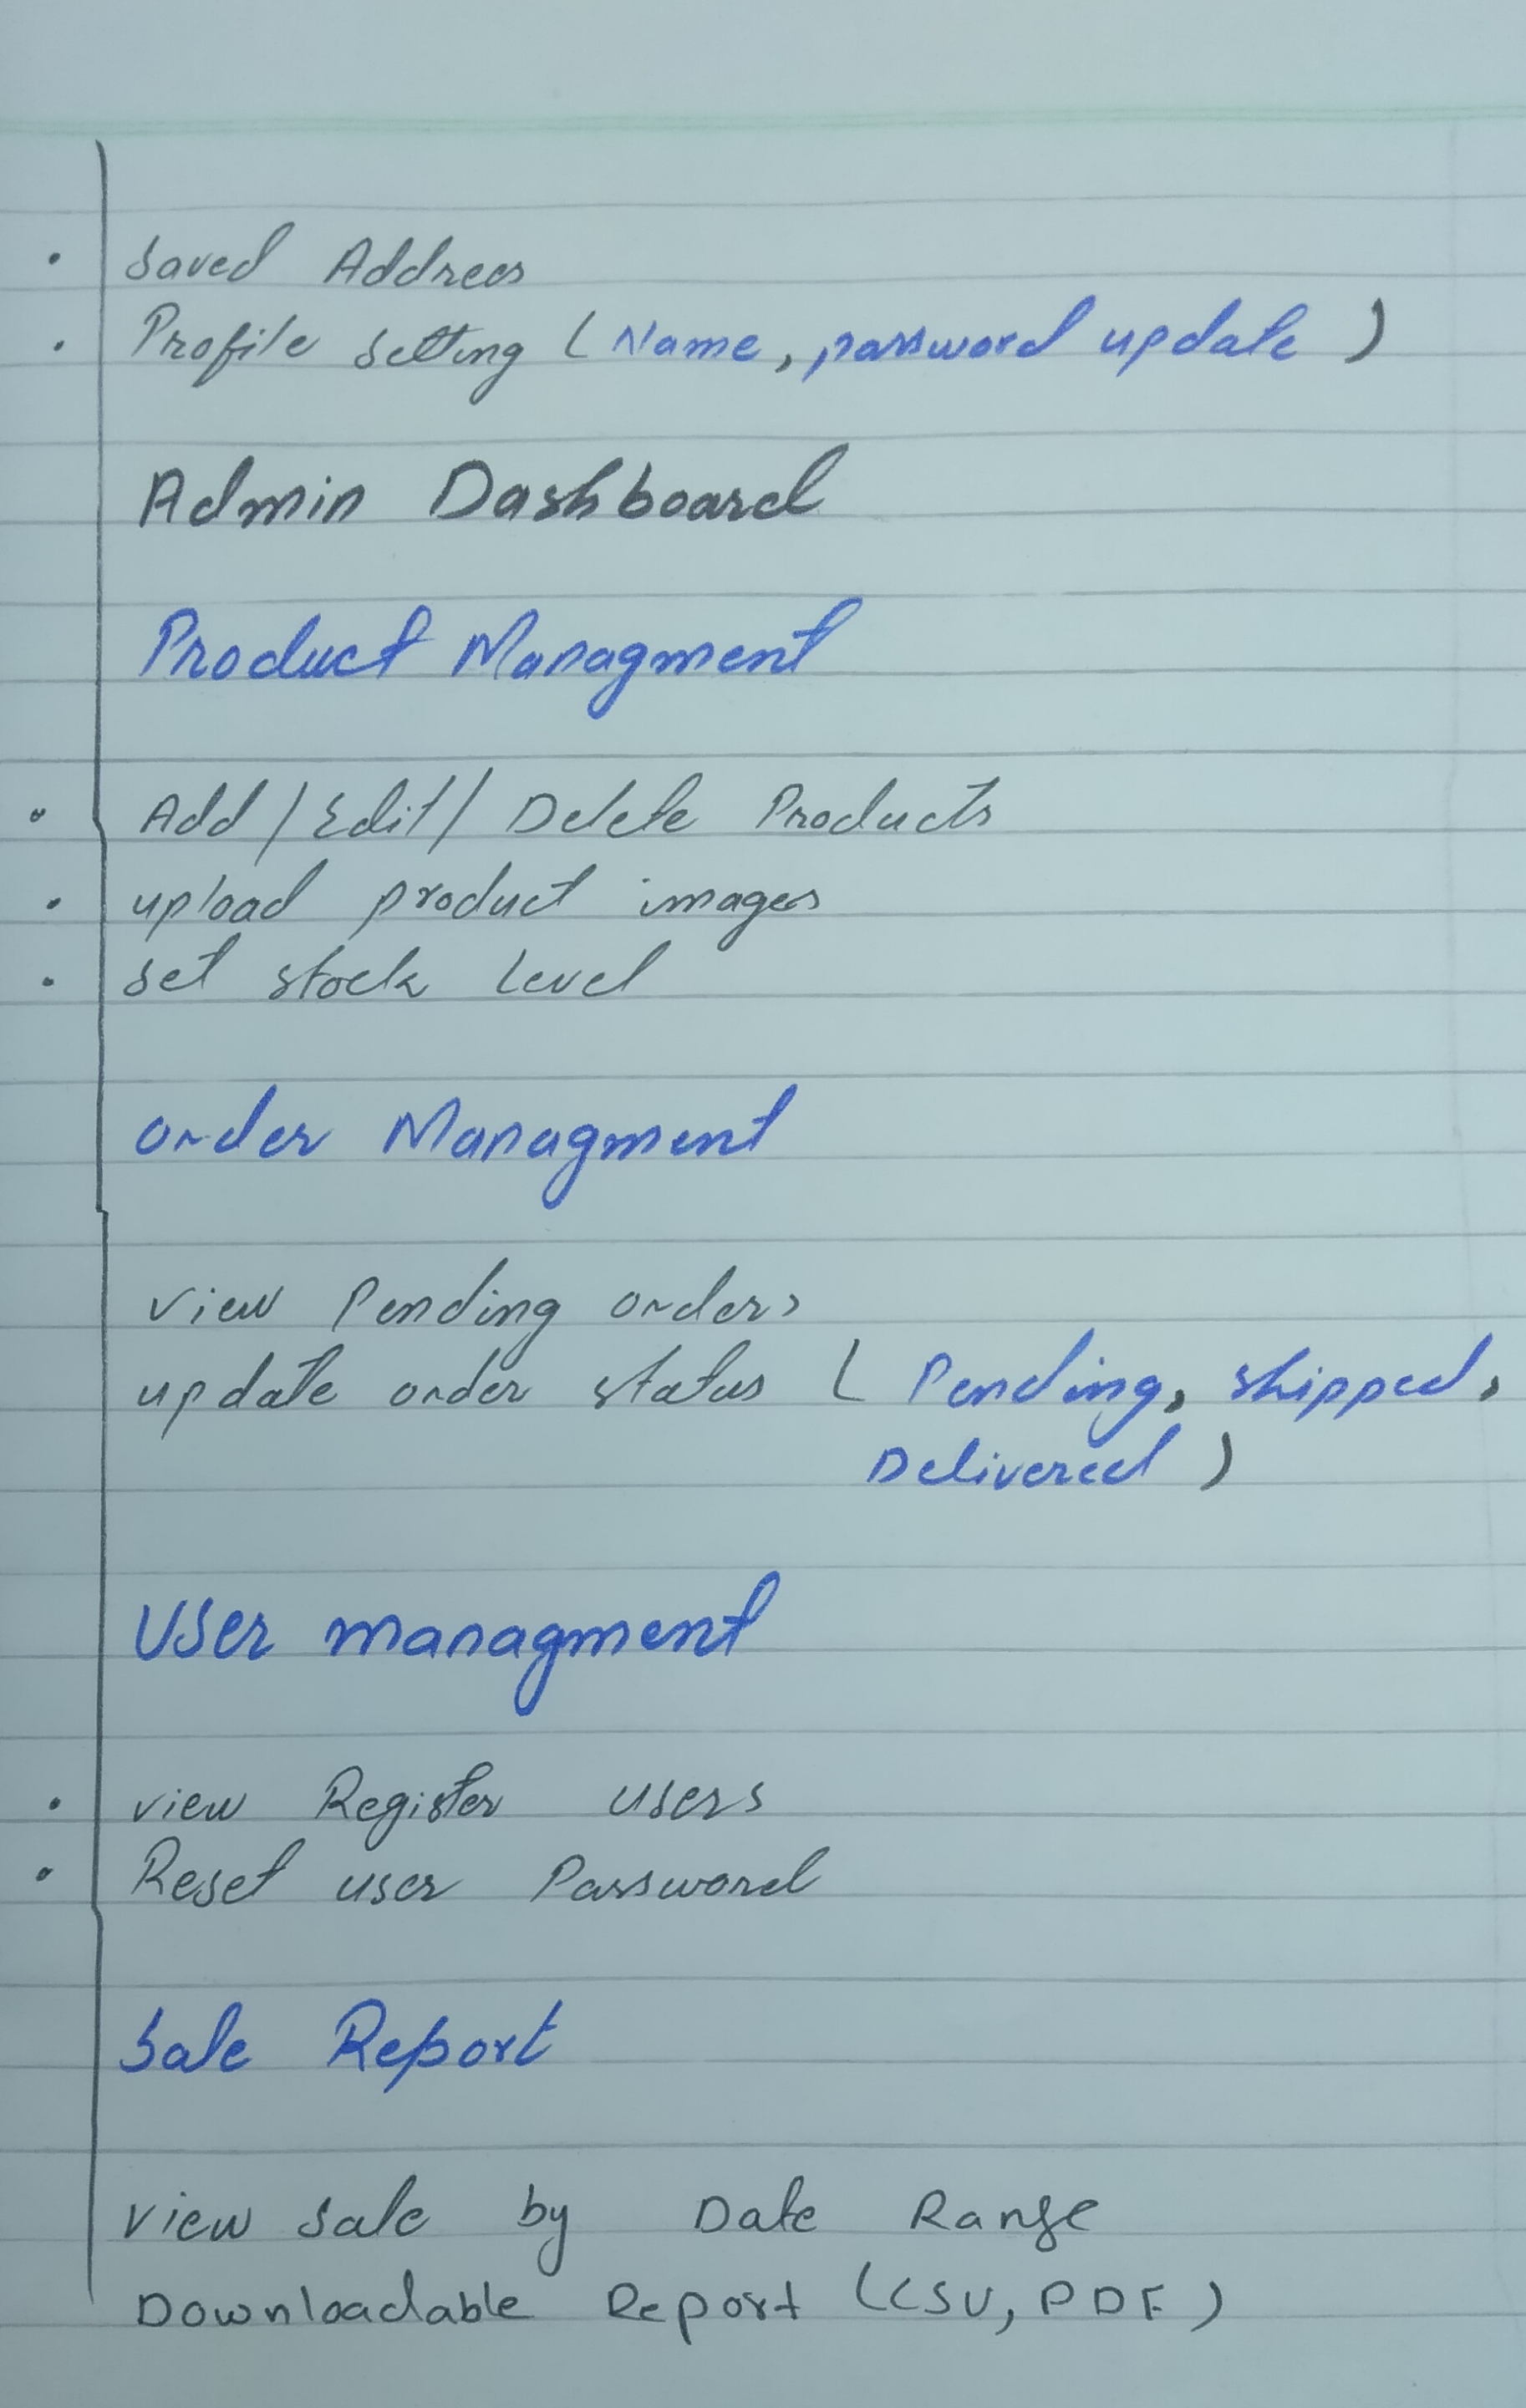 · Saved Address
· Profile setting (Name, password update)
Admin Dashboard
Product Managment
· Add/Edit/Delete Products
· upload product images
· set stock level
order Managment
view Pending orders
update order status (Pending, shipped,
Delivered)
User managment
· view Register users
· Reset user Password
Sale Report
view sale by Date Range
Downloadable Report (CSV, PDF)